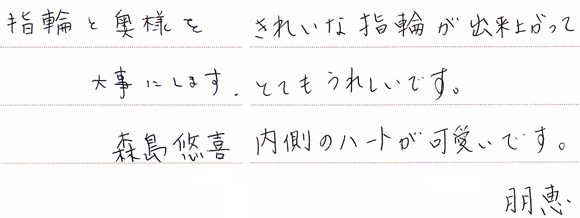 指輪と奥様を
大事にします.
森島悠喜
きれいな指輪が出来上がって
とてもうれしいです。
内側のハートが可愛いです。
朋恵